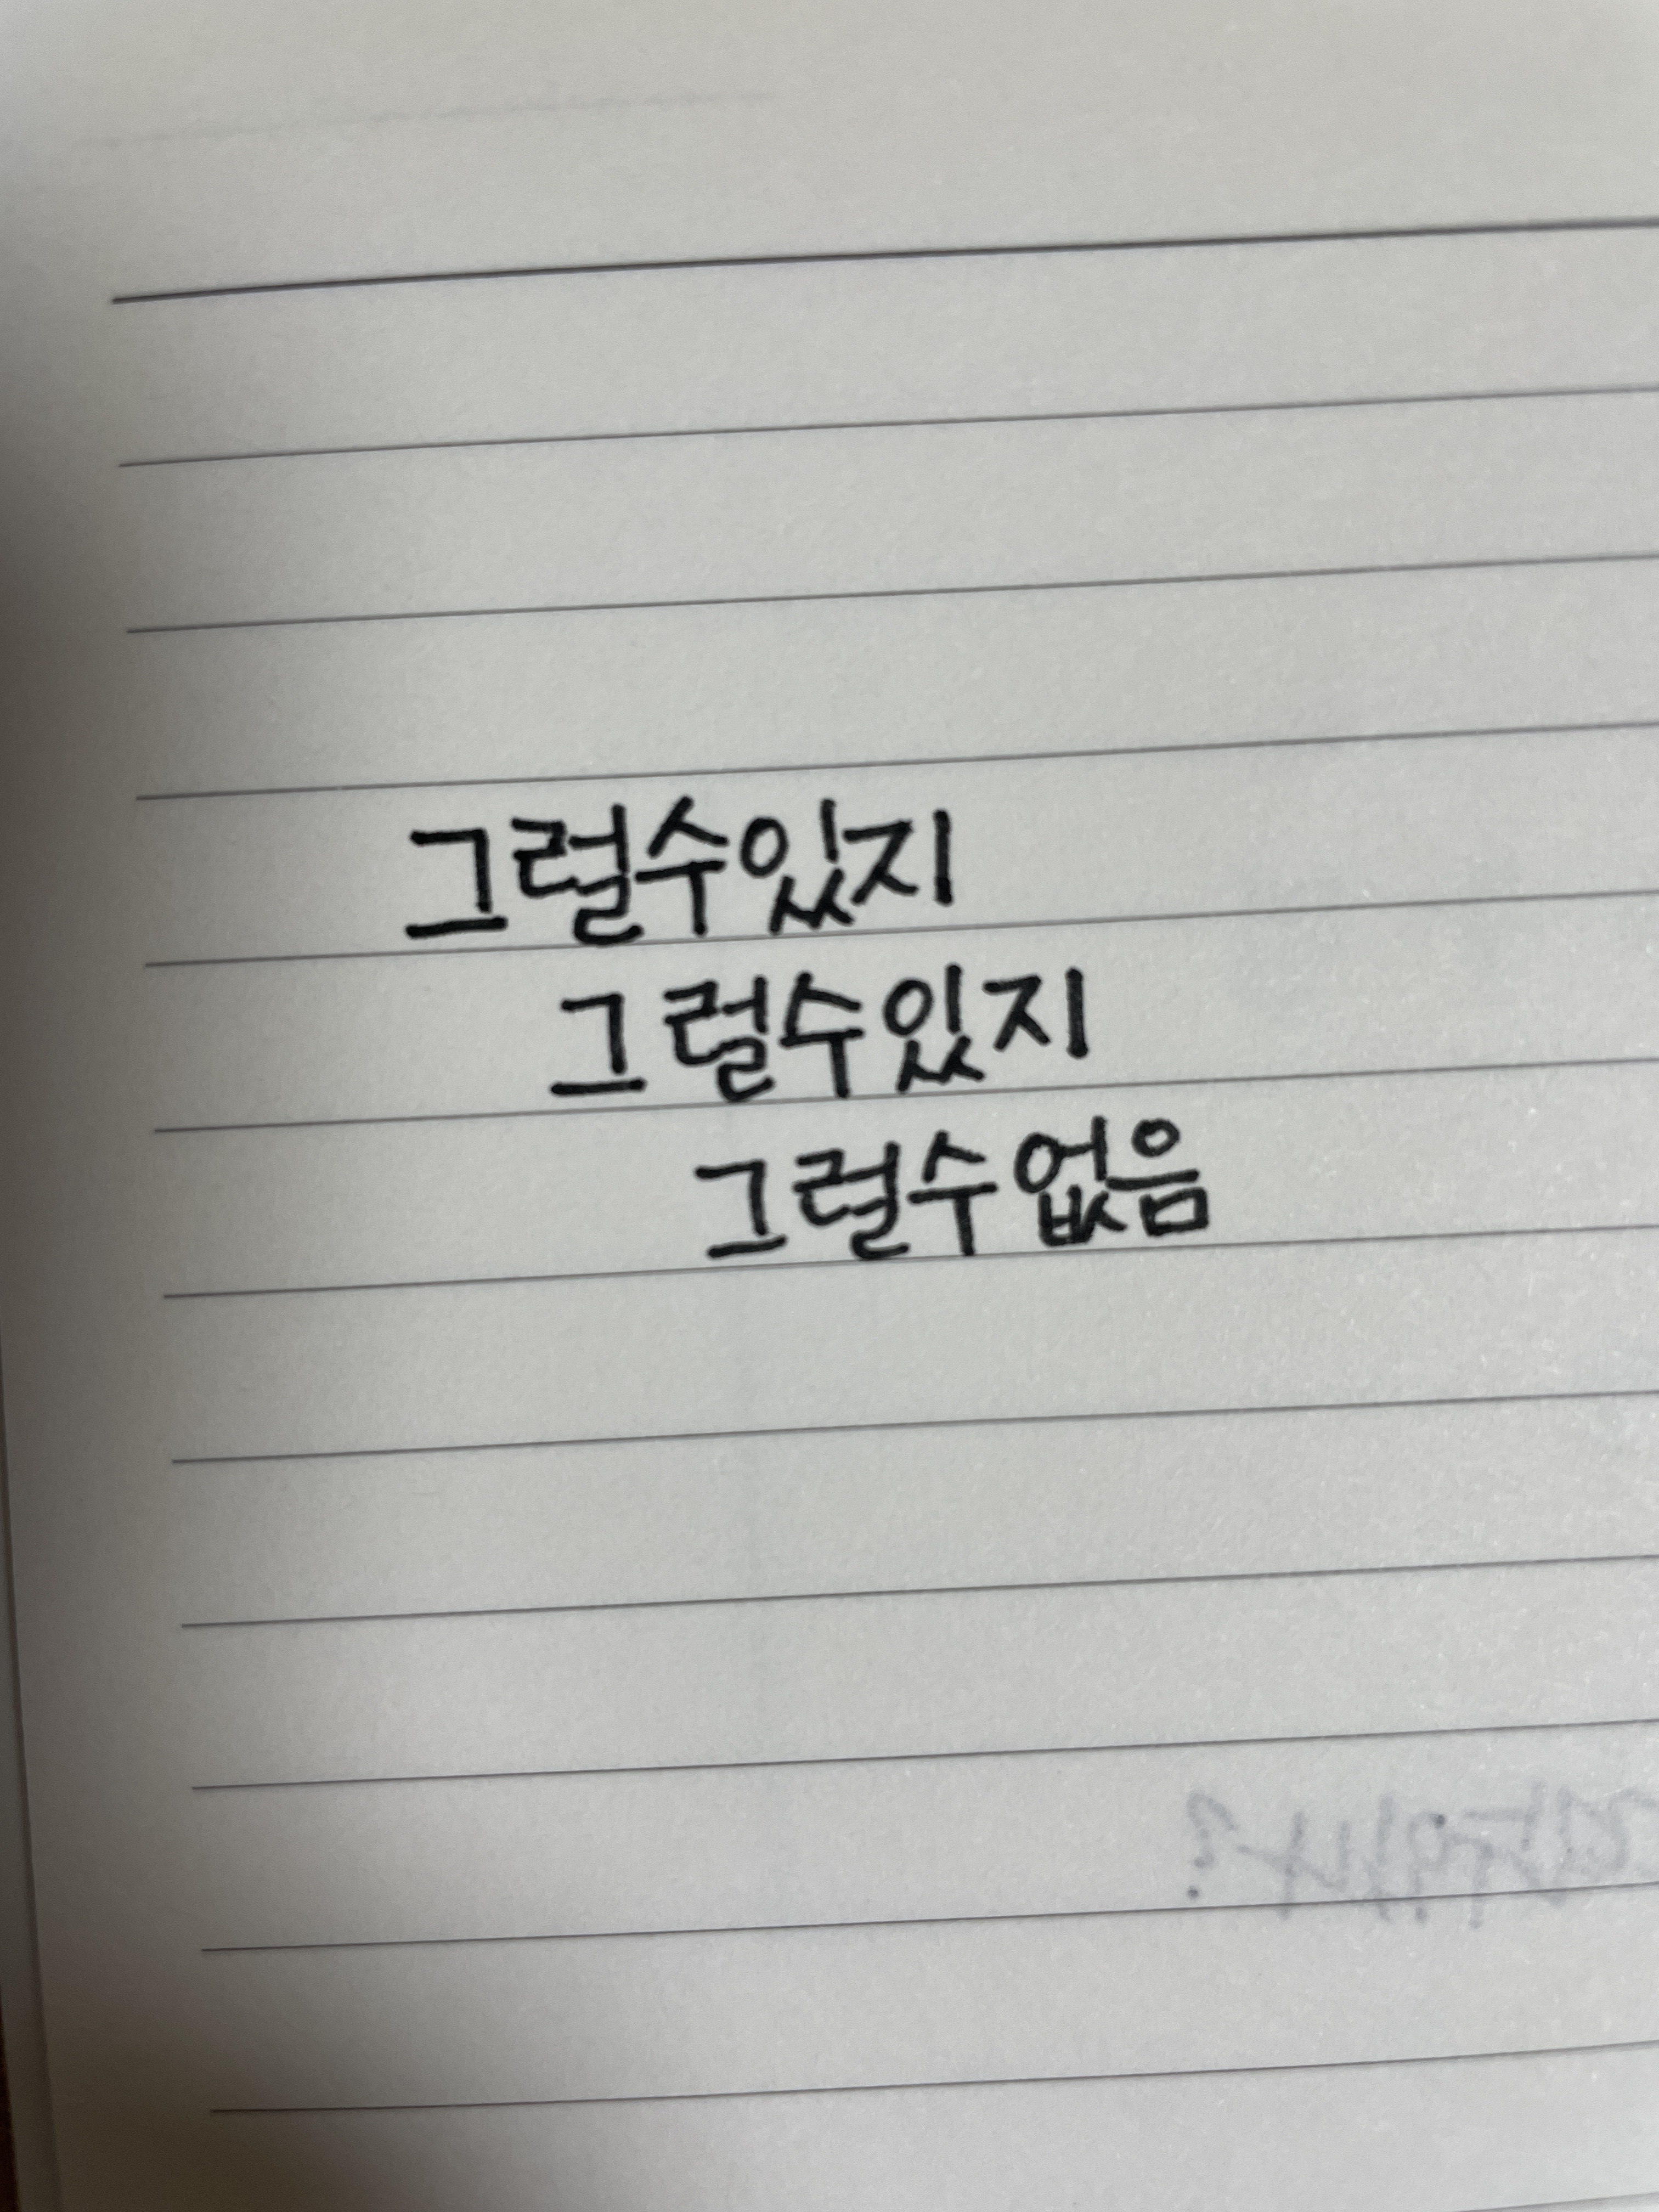 그럴수있지
그럴수있지
그럴수없음